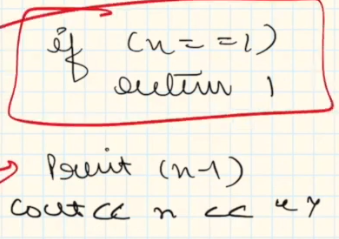 if (n==1)
return 1
Print (n-1)
cout << n << " "